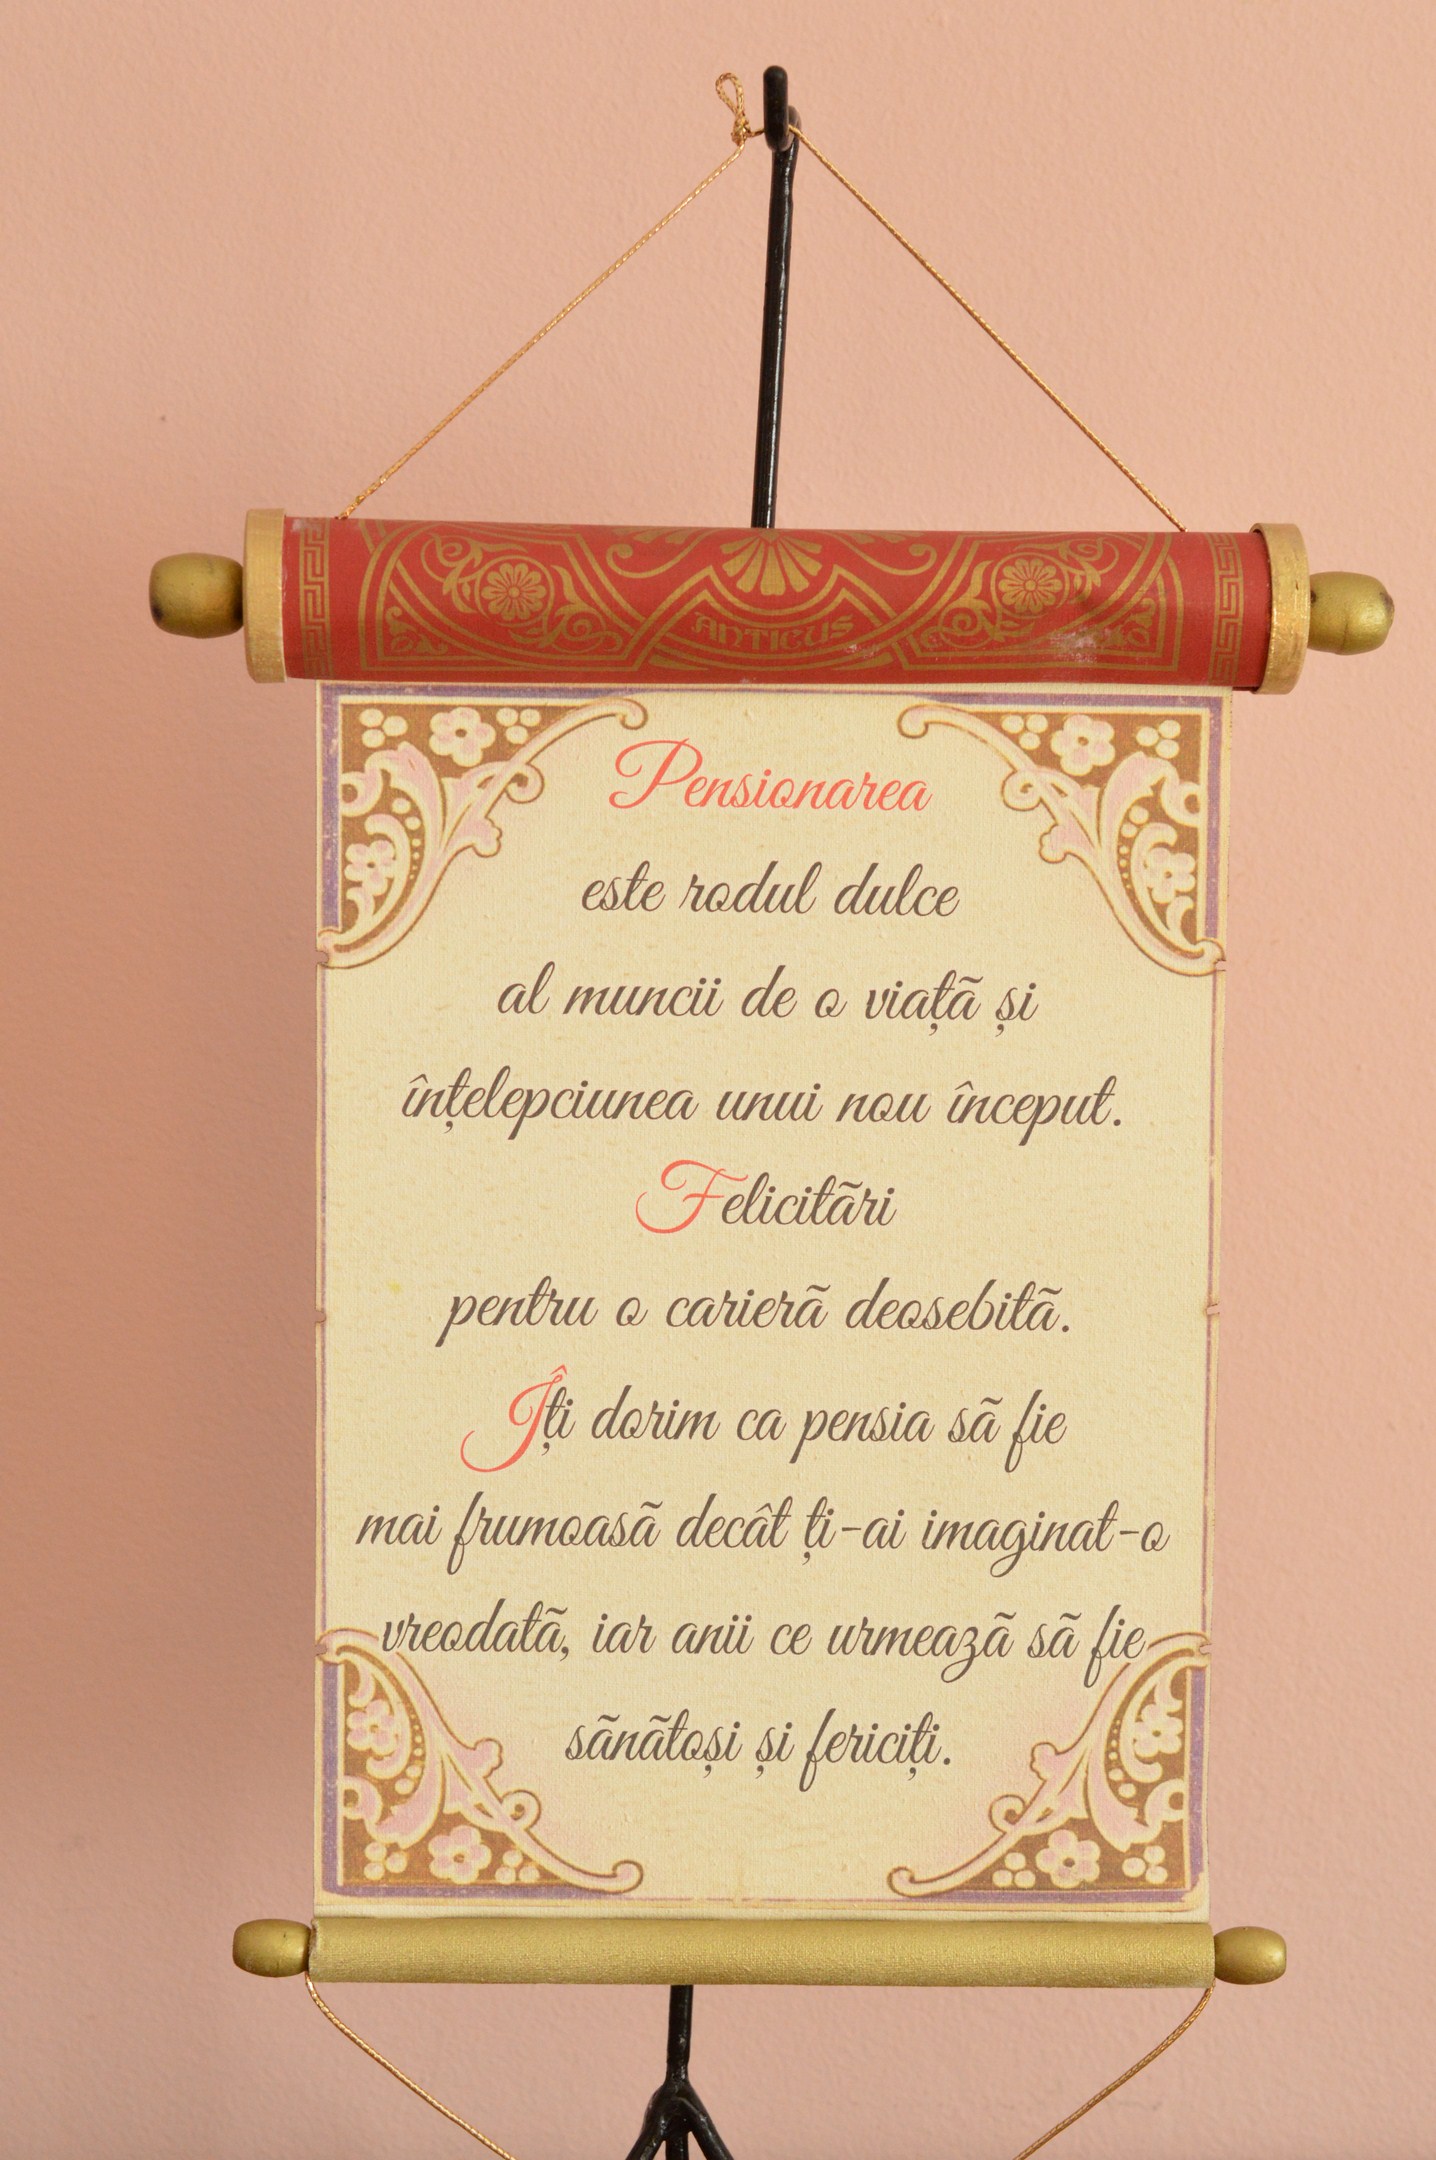 ANTICUS
Pensionarea
este rodul dulce
al muncii de o viațã și
înțelepciunea unui nou început.
Felicitãri
pentru o carierã deosebitã.
Îți dorim ca pensia sã fie
mai frumoasã decât ți-ai imaginat-o
vreodatã, iar anii ce urmeazã sã fie
sãnãtoși și fericiți.